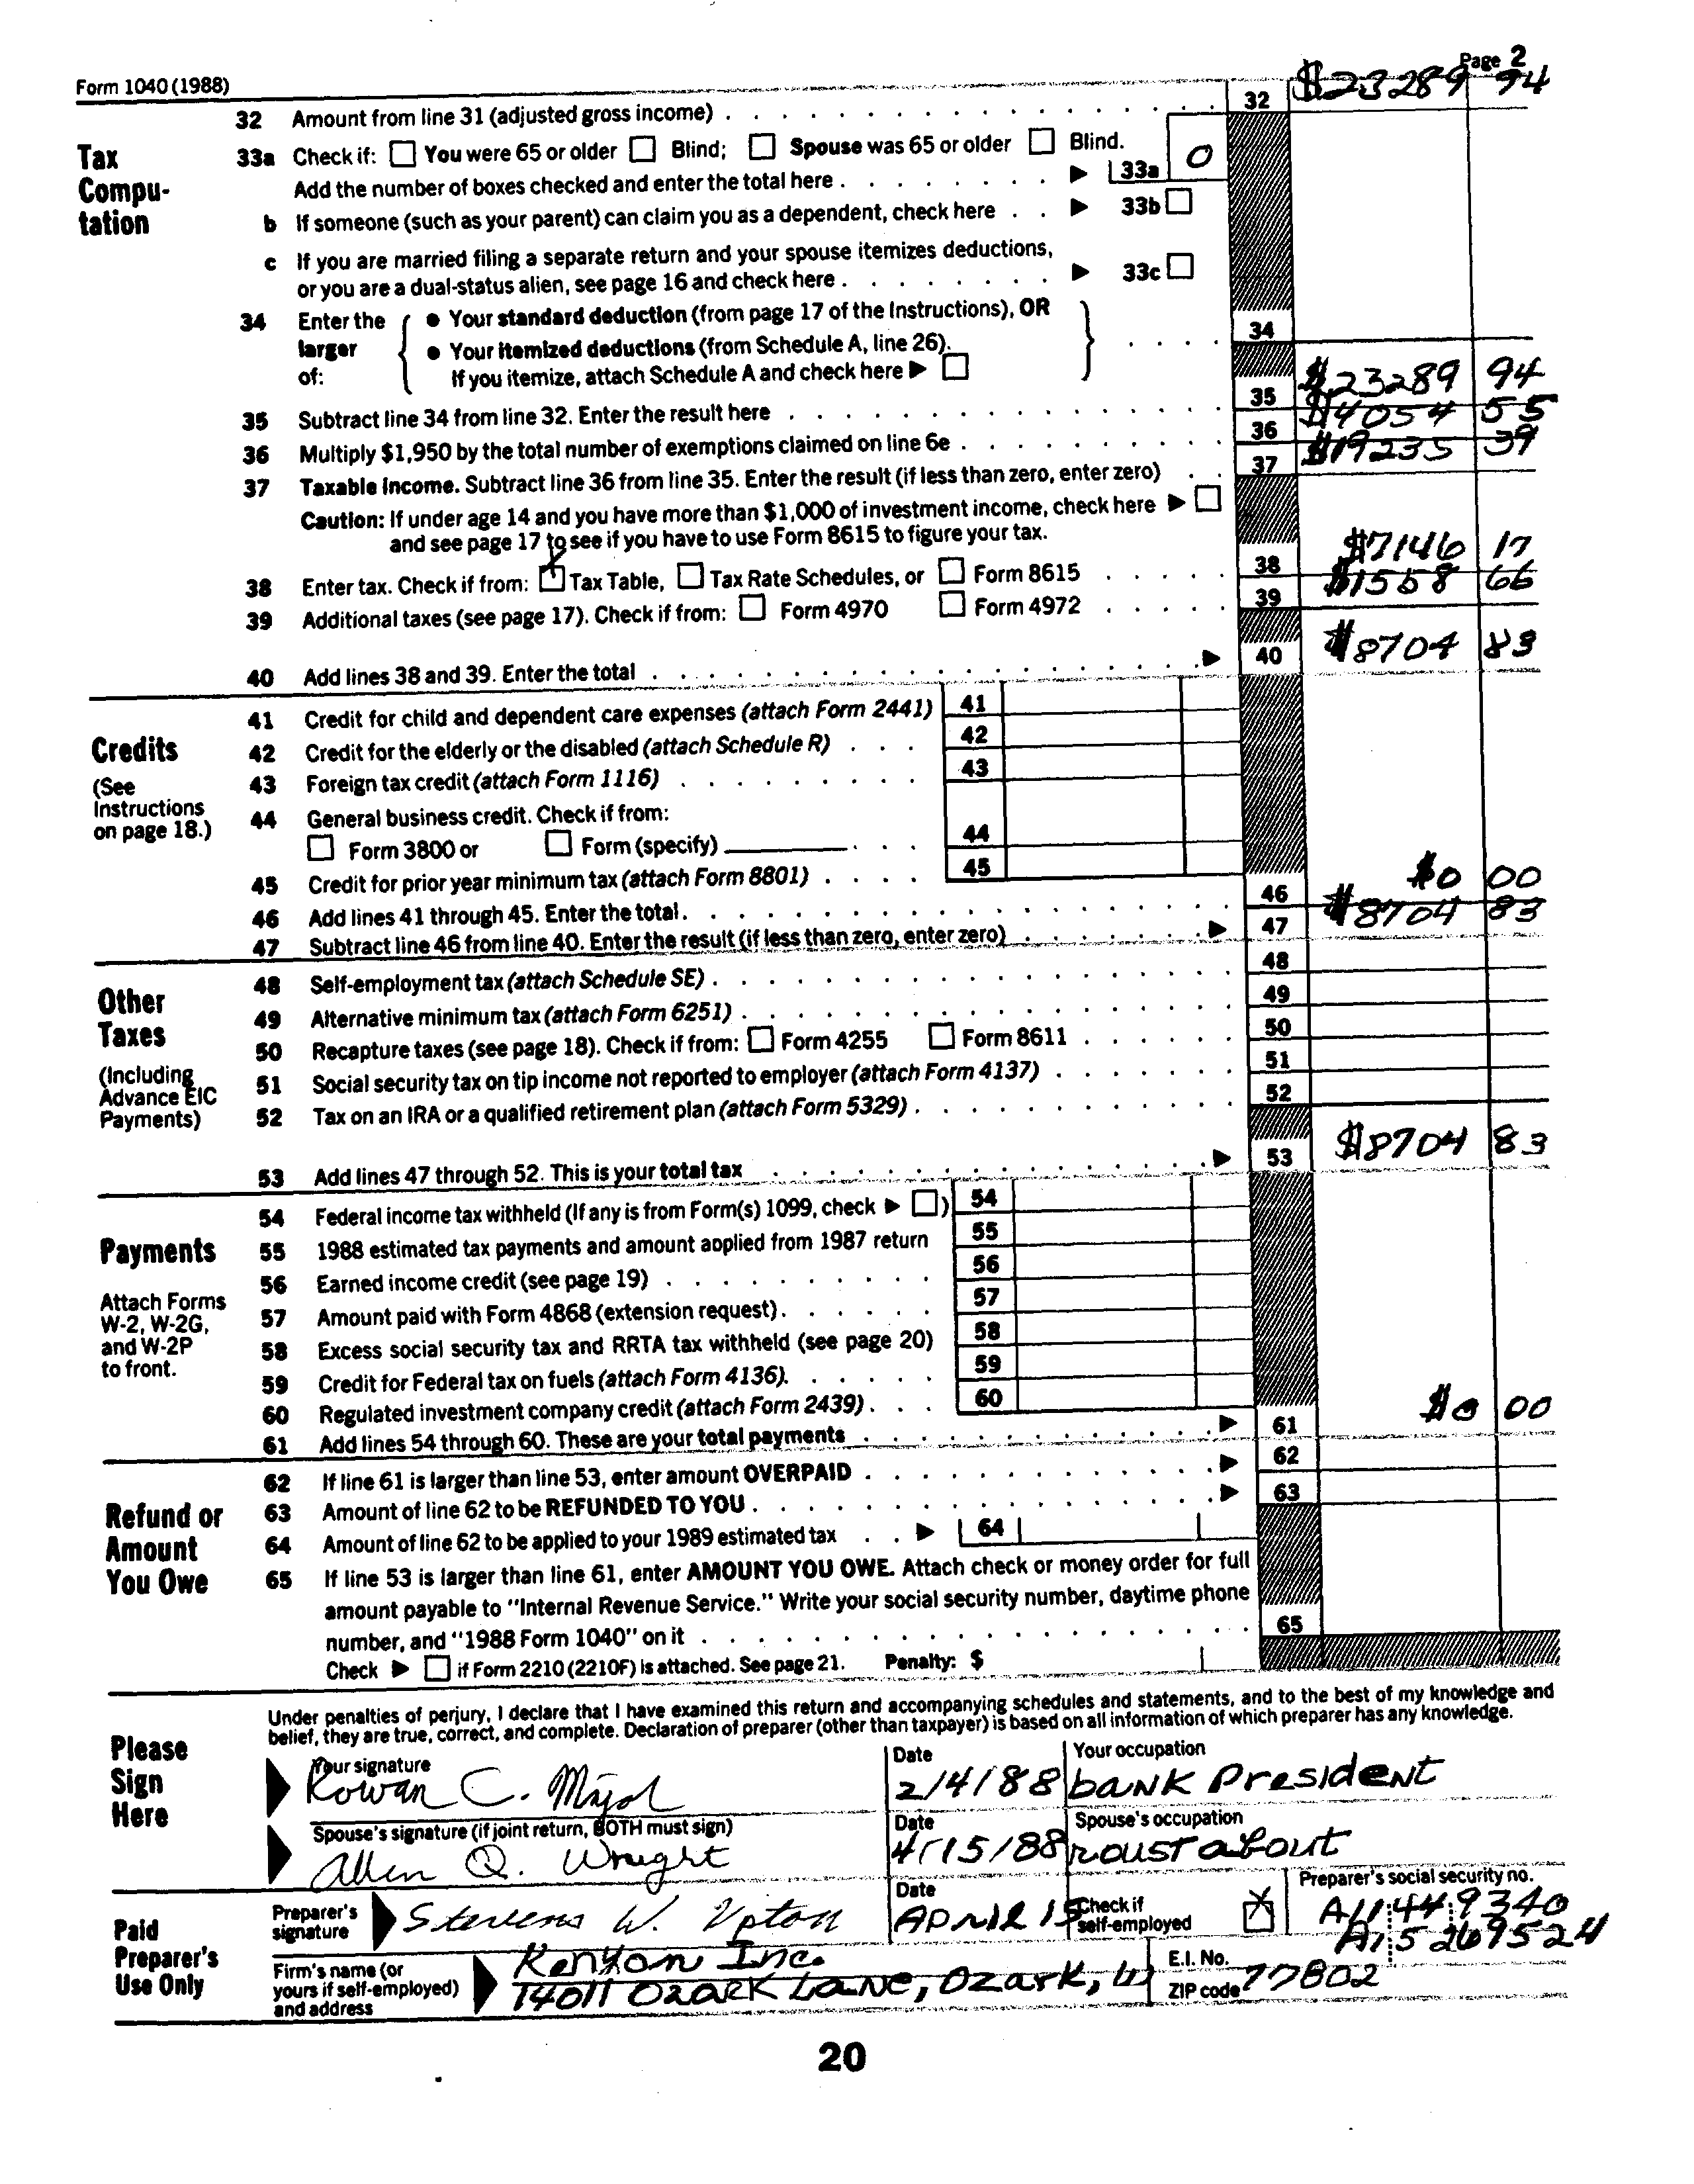 Form 1040 (1988)
Page 2
32 Amount from line 31 (adjusted gross income) 32 $23289 94
Tax Compu-tation
33a Check if: You were 65 or older Blind; Spouse was 65 or older Blind.
Add the number of boxes checked and enter the total here ▶ 33a 0
b If someone (such as your parent) can claim you as a dependent, check here ▶ 33b
c If you are married filing a separate return and your spouse itemizes deductions,
or you are a dual-status alien, see page 16 and check here ▶ 33c
34 Enter the larger of:
• Your standard deduction (from page 17 of the Instructions), OR
• Your itemized deductions (from Schedule A, line 26).
If you itemize, attach Schedule A and check here ▶
34
35 Subtract line 34 from line 32. Enter the result here 35 $23289 94
36 Multiply $1,950 by the total number of exemptions claimed on line 6e 36 $4054 55
37 Taxable income. Subtract line 36 from line 35. Enter the result (if less than zero, enter zero) 37 $19235 39
Caution: If under age 14 and you have more than $1,000 of investment income, check here ▶
and see page 17 to see if you have to use Form 8615 to figure your tax.
38 Enter tax. Check if from: Tax Table, Tax Rate Schedules, or Form 8615 38 $7146 17
39 Additional taxes (see page 17). Check if from: Form 4970 Form 4972 39 $1558 66
40 Add lines 38 and 39. Enter the total ▶ 40 $8704 83
Credits
(See Instructions on page 18.)
41 Credit for child and dependent care expenses (attach Form 2441) 41
42 Credit for the elderly or the disabled (attach Schedule R) 42
43 Foreign tax credit (attach Form 1116) 43
44 General business credit. Check if from:
Form 3800 or Form (specify) 44
45 Credit for prior year minimum tax (attach Form 8801) 45
46 Add lines 41 through 45. Enter the total 46 $0 00
47 Subtract line 46 from line 40. Enter the result (if less than zero, enter zero) ▶ 47 $8704 83
Other Taxes
(Including Advance EIC Payments)
48 Self-employment tax (attach Schedule SE) 48
49 Alternative minimum tax (attach Form 6251) 49
50 Recapture taxes (see page 18). Check if from: Form 4255 Form 8611 50
51 Social security tax on tip income not reported to employer (attach Form 4137) 51
52 Tax on an IRA or a qualified retirement plan (attach Form 5329) 52
53 Add lines 47 through 52. This is your total tax ▶ 53 $8704 83
Payments
Attach Forms W-2, W-2G, and W-2P to front.
54 Federal income tax withheld (If any is from Form(s) 1099, check ▶ ) 54
55 1988 estimated tax payments and amount applied from 1987 return 55
56 Earned income credit (see page 19) 56
57 Amount paid with Form 4868 (extension request) 57
58 Excess social security tax and RRTA tax withheld (see page 20) 58
59 Credit for Federal tax on fuels (attach Form 4136) 59
60 Regulated investment company credit (attach Form 2439) 60
61 Add lines 54 through 60. These are your total payments ▶ 61 $0 00
Refund or Amount You Owe
62 If line 61 is larger than line 53, enter amount OVERPAID ▶ 62
63 Amount of line 62 to be REFUNDED TO YOU ▶ 63
64 Amount of line 62 to be applied to your 1989 estimated tax ▶ 64
65 If line 53 is larger than line 61, enter AMOUNT YOU OWE. Attach check or money order for full
amount payable to "Internal Revenue Service." Write your social security number, daytime phone
number, and "1988 Form 1040" on it 65
Check ▶ if Form 2210 (2210F) is attached. See page 21. Penalty: $
Please Sign Here
Under penalties of perjury, I declare that I have examined this return and accompanying schedules and statements, and to the best of my knowledge and
belief, they are true, correct, and complete. Declaration of preparer (other than taxpayer) is based on all information of which preparer has any knowledge.
Your signature Date Your occupation
Rowan C. 2/4/88 bank President
Spouse's signature (if joint return, BOTH must sign) Date Spouse's occupation
Allen Q. Wright 4/15/88 roustabout
Paid Preparer's Use Only
Preparer's signature Stevens W. Upton Date April 15 Check if self-employed X Preparer's social security no.
A11449340
Firm's name (or yours if self-employed) and address
Kenyon Inc. E.I. No. A15269524
14011 Ozark Lane, Ozark, ZIP code 77802
20